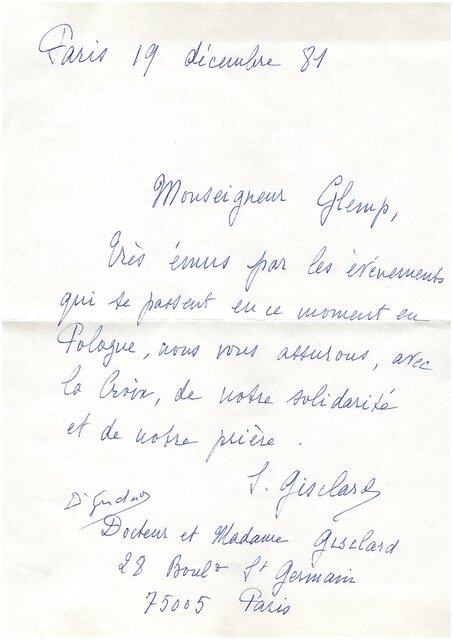 Paris 19 décembre 81
Monseigneur Glemp,
Très émus par les évènements
qui se passent en ce moment en
Pologne, nous vous assurons, avec
la Croix, de notre solidarité
et de notre prière.
S. Gisclard
Dr
Docteur et Madame GISClard
28 Boulv St Germain
75005 Paris